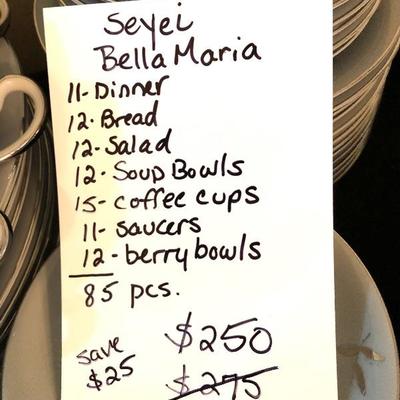 Seyei
Bella Maria
11-Dinner
12-Bread
12-Salad
12-Soup Bowls
15-coffee cups
11-saucers
12-berry bowls
85 pcs.
save $250
$25 $275